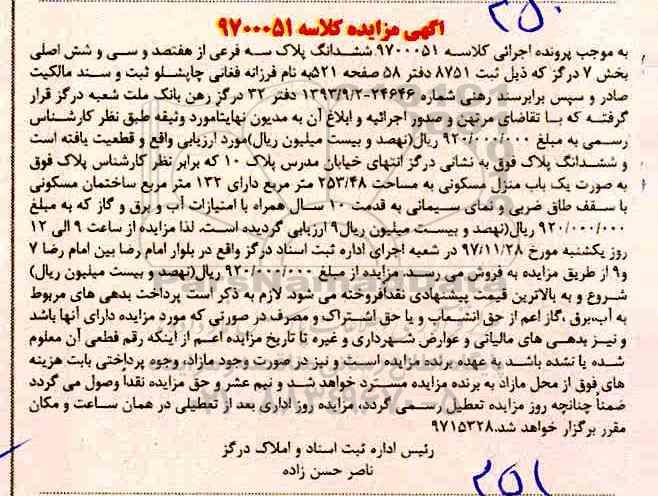 ۳۵۰
آگهی مزایده کلاسه ۹۷۰۰۰۵۱
به موجب پرونده اجرائی کلاسه ۹۷۰۰۰۵۱ ششدانگ پلاک سه فرعی از هفتصد و سی و شش اصلی
بخش ۷ درگز که ذیل ثبت ۸۷۵۱ دفتر ۵۸ صفحه ۵۲۱به نام فرزانه فغانی چاپشلو ثبت و سند مالکیت
صادر و سپس برابرسند رهنی شماره ۲۴۶۴۶-۱۳۹۳/۹/۲ دفتر ۳۲ درگز رهن بانک ملت شعبه درگز قرار
گرفته که با تقاضای مرتهن و صدور اجرائیه و ابلاغ آن به مدیون نهایتامورد وثیقه طبق نظر کارشناس
رسمی به مبلغ ۹۲۰/۰۰۰/۰۰۰ ریال(نهصد و بیست میلیون ریال)مورد ارزیابی واقع و قطعیت یافته است
و ششدانگ پلاک فوق به نشانی درگز انتهای خیابان مدرس پلاک ۱۰ که برابر نظر کارشناس پلاک فوق
به صورت یک باب منزل مسکونی به مساحت ۲۵۳/۴۸ متر مربع دارای ۱۳۲ متر مربع ساختمان مسکونی
با سقف طاق ضربی و نمای سیمانی به قدمت ۱۰ سال همراه با امتیازات آب و برق و گاز که به مبلغ
۹۲۰/۰۰۰/۰۰۰ ریال(نهصد و بیست میلیون ریال۹ ارزیابی گردیده است. لذا مزایده از ساعت ۹ الی ۱۲
روز یکشنبه مورخ ۹۷/۱۱/۲۸ در شعبه اجرای اداره ثبت اسناد درگز واقع در بلوار امام رضا بین امام رضا ۷
و۹ از طریق مزایده به فروش می رسد. مزایده از مبلغ ۹۲۰/۰۰۰/۰۰۰ ریال(نهصد و بیست میلیون ریال)
شروع و به بالاترین قیمت پیشنهادی نقدافروخته می شود. لازم به ذکر است پرداخت بدهی های مربوط
به آب،برق ،گاز اعم از حق انشعاب و یا حق اشتراک و مصرف در صورتی که مورد مزایده دارای آنها باشد
و نیز بدهی های مالیاتی و عوارض شهرداری و غیره تا تاریخ مزایده اعم از اینکه رقم قطعی آن معلوم
شده یا نشده باشد به عهده برنده مزایده است و نیز در صورت وجود مازاد، وجوه پرداختی بابت هزینه
های فوق از محل مازاد به برنده مزایده مسترد خواهد شد و نیم عشر و حق مزایده نقداً وصول می گردد
ضمناً چنانچه روز مزایده تعطیل رسمی گردد، مزایده روز اداری بعد از تعطیلی در همان ساعت و مکان
مقرر برگزار خواهد شد.۹۷۱۵۳۲۸
رئیس اداره ثبت اسناد و املاک درگز
ناصر حسن زاده
۳۵۱